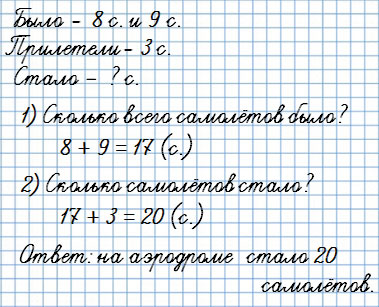 Было - 8 с. и 9 с.
Прилетели - 3 с.
Стало - ? с.
1) Сколько всего самолётов было?
8 + 9 = 17 (с.)
2) Сколько самолётов стало?
17 + 3 = 20 (с.)
Ответ: на аэродроме стало 20
самолётов.